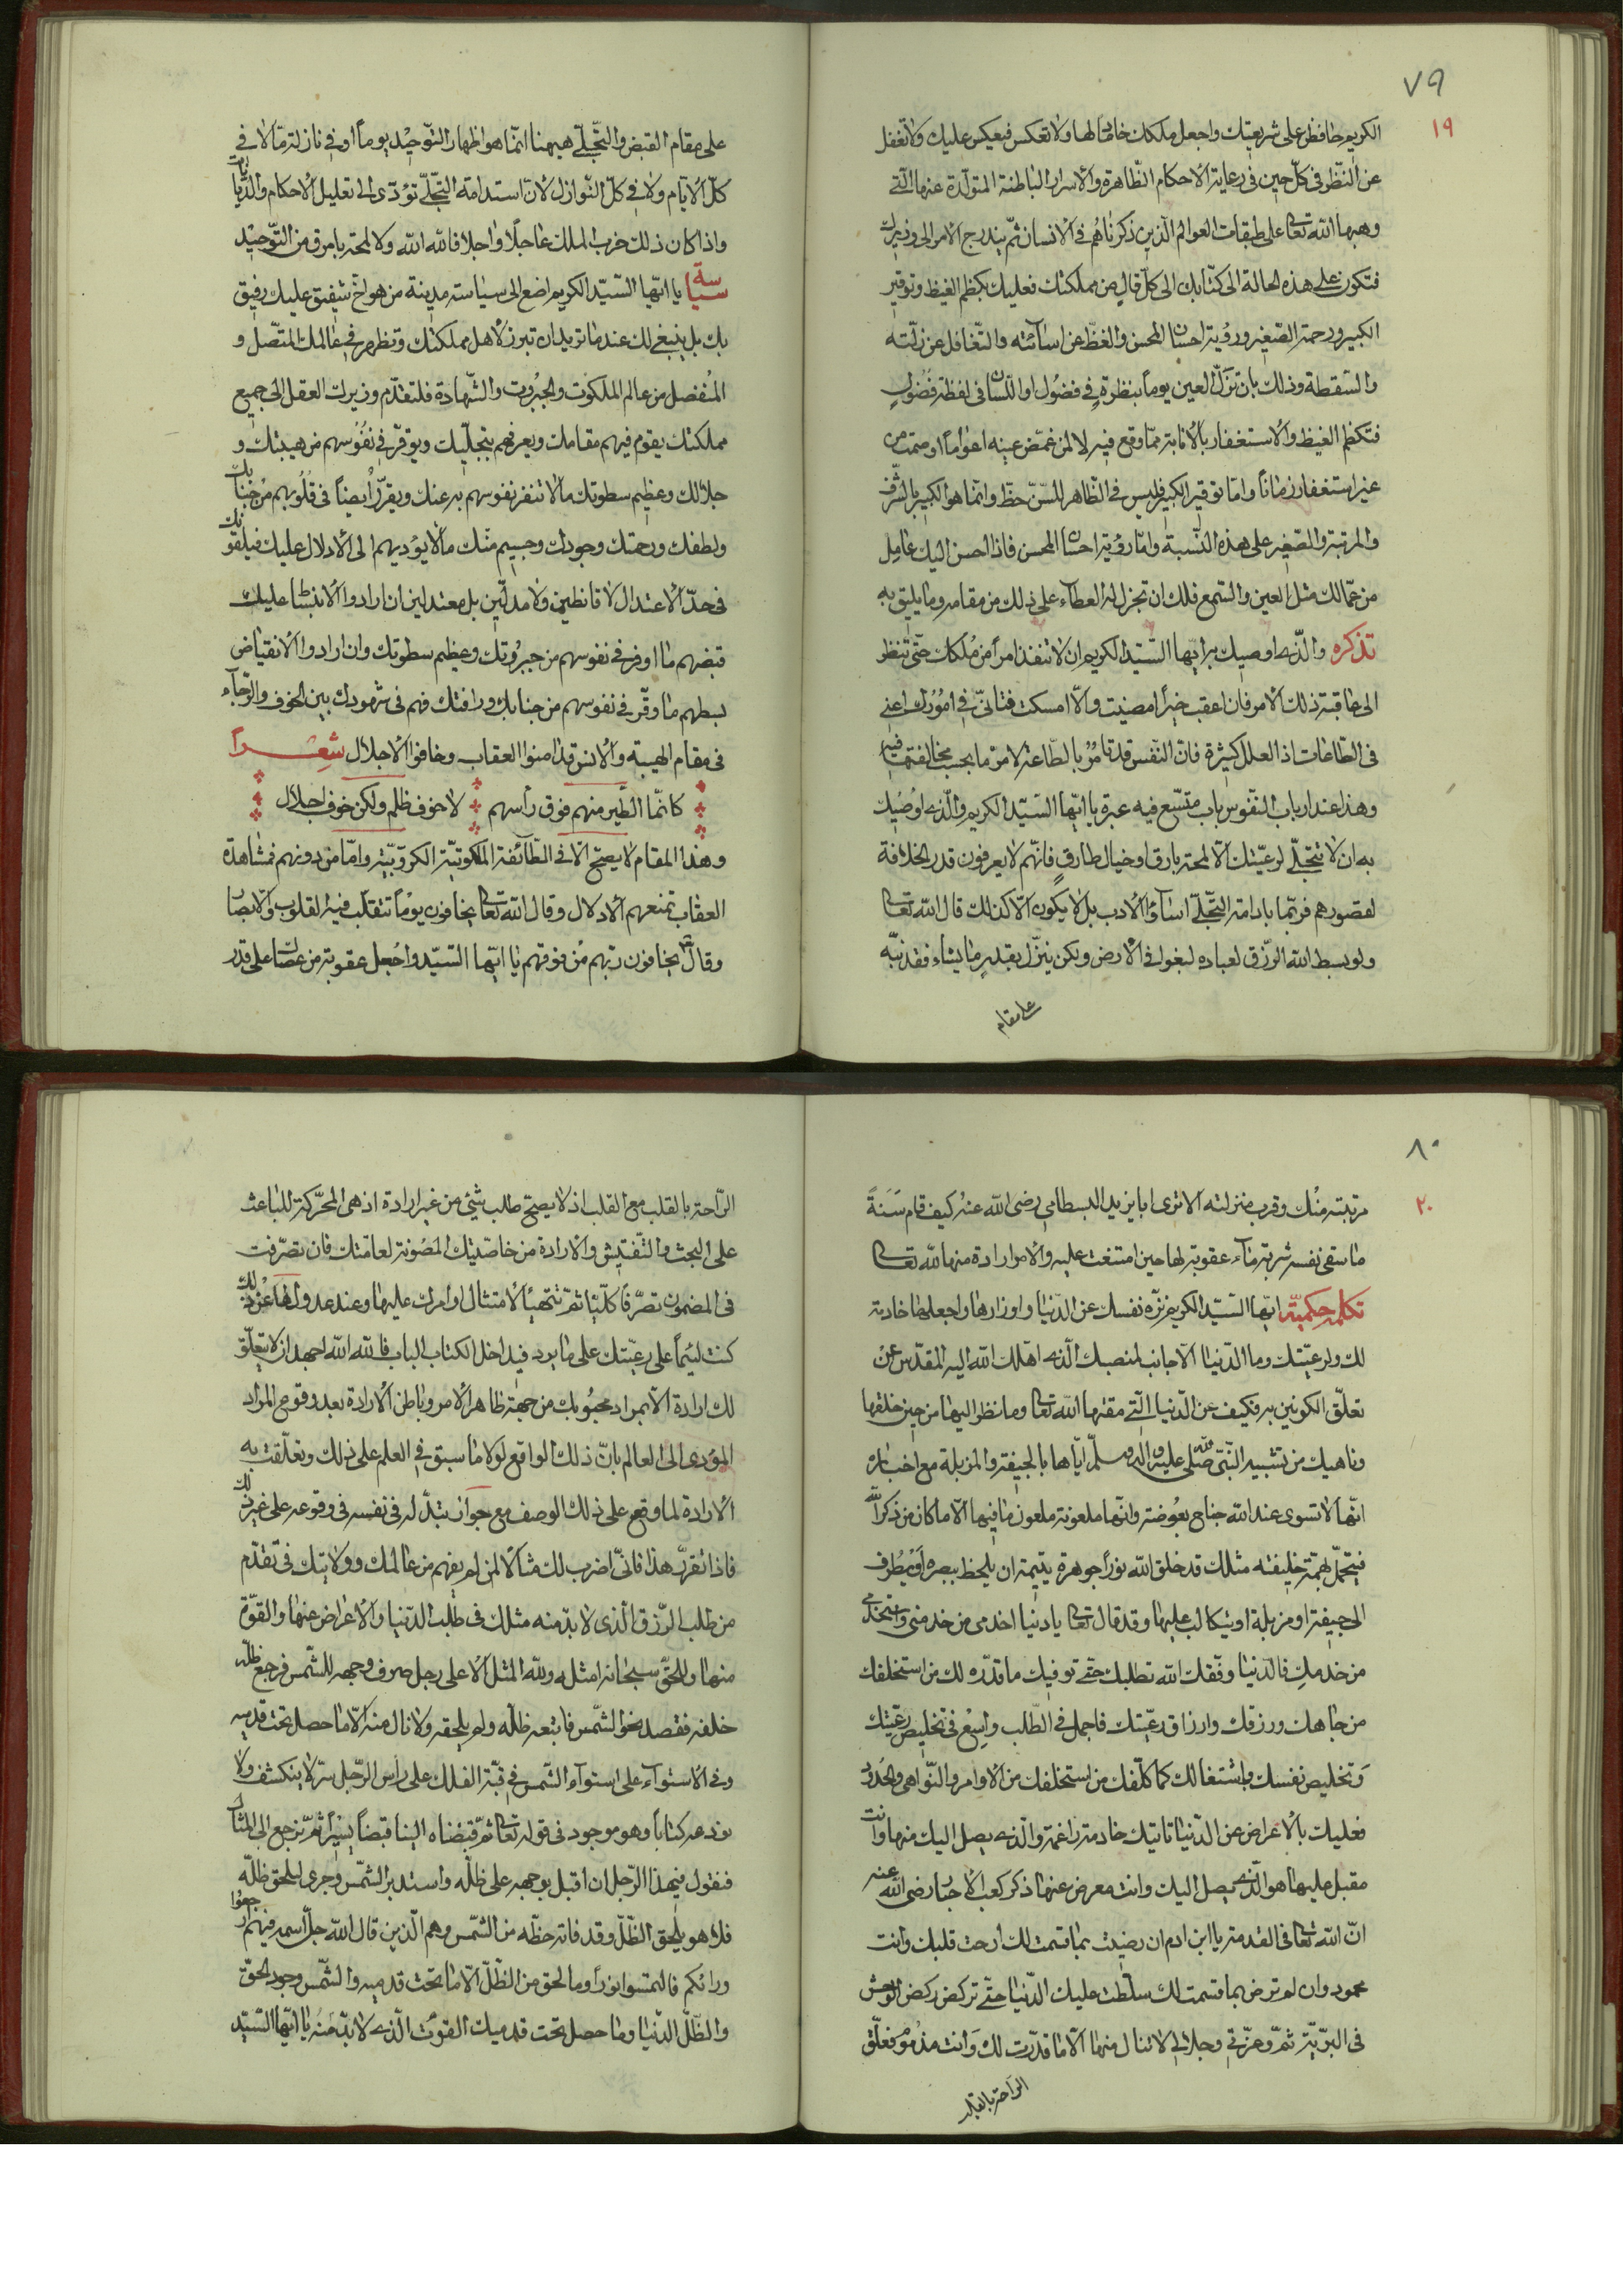 ٧٩
١٩
الكريم حافظ على شريعتك واجعل ملكك خادما لها ولا تعكس فيعكس عليك ولا تغفل
عن النظر فى كلّ حين فى رعاية الاحكام الظّاهرة والاسرار الباطنة المتولّدة عنها الّتى
وهبها الله تعالى على طبقات العوالم الّذين ذكرناهم فى الانسان ثمّ يندرج الامر الى وزيرك
فتكون على هذه الحالة الى كتّابك الى كلّ قال من مملكتك فعليك بكظم الغيظ وتوقير
الكبير ورحمة الصّغير ورؤية احسان المحسن والغضّ عن اسائته والتّغافل عن زلّته
والسّقطة وذلك بان تزلّ العين يوماً بنظرة فى فضول او اللّسان فى لفظة فضول
فتكظم الغيظ والاستغفار بالانابة ممّا وقع فيه لا لمن غمّض عينه اعواماً او صمت من
غير استغفار زماناً وامّا توقير الكبير فليس فى الظّاهر للسّنّ حظّ وانّما هو الكبير بالشّرف
والمرتبة والصّغير على هذه النّسبة وامّا رؤية احسان المحسن فاذا احسن اليك عامل
من عمّالك مثل العين والسّمع فلك ان تجزل له العطاء على ذلك من مقامه وما يليق به
تذكره والّذى اوصيك به ايّها السّيّد الكريم ان لا تنفذ امراً من ملكك حتّى تنظر
الى عاقبة ذلك الامر فان اعقب خيراً امضيت والّا امسكت فتانّى فى امورك اعنى
فى الطّاعات اذ العلل كثيرة فانّ النّفس قد تامر بالطّاعة لامر ما يجب مخالفتها فيه
وهذا عند ارباب النّفوس باب متّسع فيه عبرة يا ايّها السّيّد الكريم والّذى اوصيك
به ان لا تتجلّى لرعيّتك الّا لمحة بارق او خيال طارق فانّهم لا يعرفون قدر الخلافة
لقصورهم فربّما بادامة التّجلّى اساؤا الادب بل لا يكون الّا كذلك قال الله تعالى
ولو بسط الله الرّزق لعباده لبغوا فى الارض ولكن ينزّل بقدر ما يشاء فقد نبّه
على مقام
على مقام القبض والتّجلّى هيهنا انّما هو اظهار التّوحيد يوماً او فى نازلة ما لا فى
كلّ الايّام ولا فى كلّ النّوازل لانّ استدامة التّجلّى تؤدّى الى تعليل الاحكام والدّيانات
واذا كان ذلك خرب الملك عاجلًا واجلا فالله الله ولا لمحة بامرق من التّوحيد
سياسة يا ايّها السّيّد الكريم اضع الى سياسة مدينة من هو اخ شفيق عليك رفيق
بك بل ينبغى لك عندما تريد ان تبرز لاهل مملكتك وتظهر فى عالمك المتّصل و
المنفصل من عالم الملكوت والجبروت والشّهادة فلتقدّم وزيرك العقل الى جميع
مملكتك يقوم فيهم مقامك ويعرفهم بتجلّيك ويوقرّ فى نفوسهم من هيبتك و
جلالك وعظيم سطوتك ما لا تنفر نفوسهم به عنك ويقرّر أيضاً فى قلوبهم من حنانك
ولطفك ورحمتك وجودك وجسيم منّك ما لا يؤديهم الى الادلال عليك فيلقونك
فى حدّ الاعتدال لا قانطين ولا مدلّين بل معتدلين ان ارادوا الانبساط عليك
قبضهم ما اوقر فى نفوسهم من جبروتك وعظيم سطوتك وان ارادوا الانقباض
بسطهم ما وقّر فى نفوسهم من جنابك ورافتك فهم فى شهودك بين الخوف والرّجآء
فى مقام الهيبة والانس قد امنوا العقاب وخافوا الاجلال شعراً
كانّما الطّير منهم فوق رأسهم لا خوف ظلم ولكن خوف اجلال
وهذا المقام لا يصحّ الّا فى الطّائفة الملكوتيّة الكروبيّة وامّا من دونهم فمشاهدة
العقاب تمنعهم الادلال وقال الله تعالى يخافون يوماً تتقلّب فيه القلوب والابصار
وقال تعالى يخافون ربّهم من فوقهم يا ايّها السّيّد واجعل عقوبة من عصاك على قدر
٨٠
٢٠
مرتبته منك وقرب منزلته الا ترى ابا يزيد البسطامى رضى الله عنه كيف قام سنة
ما سقى نفسه شربة ماء عقوبة لها حين امتنعت عليه والامر ارادة منها لله تعالى
تكلمه حكميّة ايّها السّيّد الكريم نزّه نفسك عن الدّنيا واوزارها واجعلها خادمة
لك ولرعيّتك وما الدّنيا الّا جانب لمنصبك الّذى اهّلك الله اليه المقدّس عن
تعلّق الكونين به فكيف عن الدّنيا الّتى مقتها الله تعالى وما نظر اليها من حين خلقها
وناهيك من تشبيه النّبىّ صلّى الله عليه واله وسلّم ايّاها بالجيفة والمزبلة مع اخباره
انّها لا تسوى عند الله جناح بعوضة وانّها ملعونة ملعون ما فيها الّا ما كان من ذكر الله
فيتحمّل بهمّة خليفته مثلك قد خلق الله نوراً جوهرة يتيمة ان يلحظ ببصره أو يطرف
الى جيفة او مزبلة او يتكالب عليها وقد قال تعالى يا دنيا اخدمى من خدمنى واستخدمى
من خدمك فالدّنيا وفّقك الله تطلبك حتّى توفيك ما قدّره لك من استخلفك
من جاهك ورزقك وارزاق رعيّتك فاجمل فى الطّلب واسع فى تخليص رعيّتك
وتخليص نفسك باشتغالك كما كلّفك من استخلفك من الاوامر والنّواهى والحدود
فعليك بالاعراض عن الدّنيا تاتيك خادمة راغمة والّذى يصل اليك منها وانت
مقبل عليها هو الّذى يصل اليك وانت معرض عنها ذكر كعب الاحبار رضى الله عنه
انّ الله تعالى قال فى التورية يا ابن ادم ان رضيت بما قسمت لك ارحت قلبك وانت
محمود وان لم ترض بما قسمت لك سلّطت عليك الدّنيا حتّى تركض ركض الوحش
فى البرّيّة ثمّ وعزّتى وجلالى لا تنال منها الّا ما قدّرت لك وانت مذموم فعلّق
الراحة بالقلب
الرّاحة بالقلب مع القلب اذ لا يصحّ طلب شئ من غير ارادة اذ هى المحرّكة للباعث
على البحث والتّفتيش والارادة من خاصّيتك المصونة لعامّتك فان تصرّفت
فى المضمون تصرّفاً كلّيّا ثمّ تتهيّأ لامتثال اوامرك عليها وعند عدولها عن ذلك
كنت لئيماً على رعيّتك على ما يرد فى داخل الكتاب الباب فالله الله اجهد ان لا يتعلّق
لك ارادة الّا بمراد محبوبك من جهة ظاهر الامر وباطن الارادة بعد وقوع المراد
المؤدى الى العالم بانّ ذلك الواقع لولا ما سبق فى العلم على ذلك وتعلّقت به
الارادة لما وقع على ذلك الوصف مع جواز تبدّله فى نفسه فى وقوعه على غير ذلك
فاذا تقرّر هذا فانّى اضرب لك مثالًا لمن لم يفهم من عالمك وولايتك فى تقدّم
من طلب الرّزق الّذى لا بدّ منه مثلك فى طلب الدّنيا والاعراض عنها والقوّة
منها والحقّ سبحانه امثله ولله المثل الاعلى رجل صرف وجهه للشّمس فرجع ظلّه
خلفه فقصد نحو الشّمس فاتبعه ظلّه ولم يلحقه ولا نال منه الّا ما حصل تحت قدميه
وفى الاستوآء على استوآء الشّمس فى قبّة الفلك على راس الرّجل سرّ لا ينكشف ولا
نودعه كتاباً وهو موجود فى قوله تعالى ثمّ قبضناه الينا قبضاً يسيراً ثمّ نرجع الى المثال
فنقول فهذا الرّجل ان اقبل بوجهه على ظلّه واستدبر الشّمس وجرى ليلحق ظلّه
فلا هو يلحق الظّلّ وقد فاته حظّه من الشّمس وهم الّذين قال الله جلّ اسمه فيهم ارجعوا
ورائكم فالتمسوا نوراً وما لحق من الظّلّ الّا ما تحت قدميه والشّمس وجود الحقّ
والظّلّ الدّنيا وما حصل تحت قدميك القوت الّذى لا بدّ منه يا ايّها السّيّد